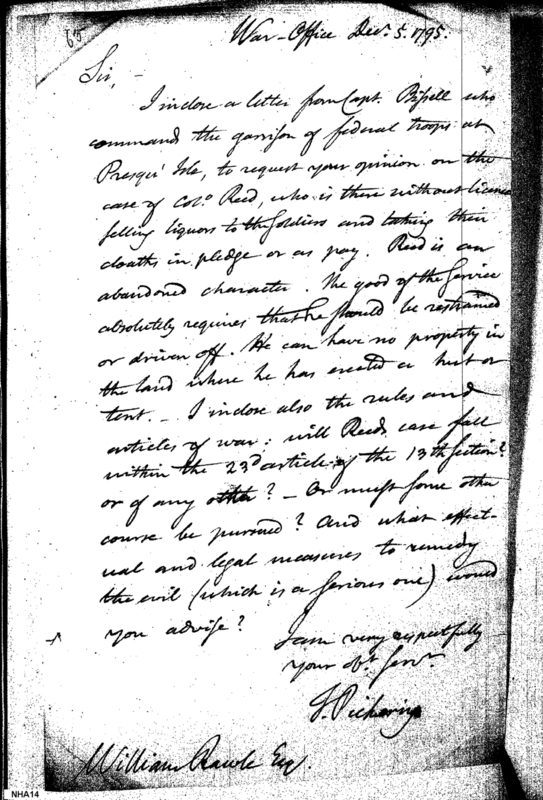 65
War-Office Decr. 5. 1795.
Sir, -
I inclose a letter from Capt. Bissell who
commands the garrison of federal troops at
Presqu' Isle, to request your opinion on the
case of Colo. Reed, who is there without licence
selling liquors to the Soldiers and taking their
cloaths in pledge or as pay. Reed is an
abandoned character. The good of the service
absolutely requires that he should be restrained
or driven off. He can have no property in
the land where he has erected a hut or
tent. - I inclose also the rules and
articles of war: will Reeds case fall
within the 23d article of the 13th section?
or of any other? - Or must some other
course be pursued? And what effect-
ual and legal measures to remedy
the evil (which is a serious one) would
you advise?
I am very respectfully
your obt. servt.
T. Pickering
William Rawle Esq.
NHA14